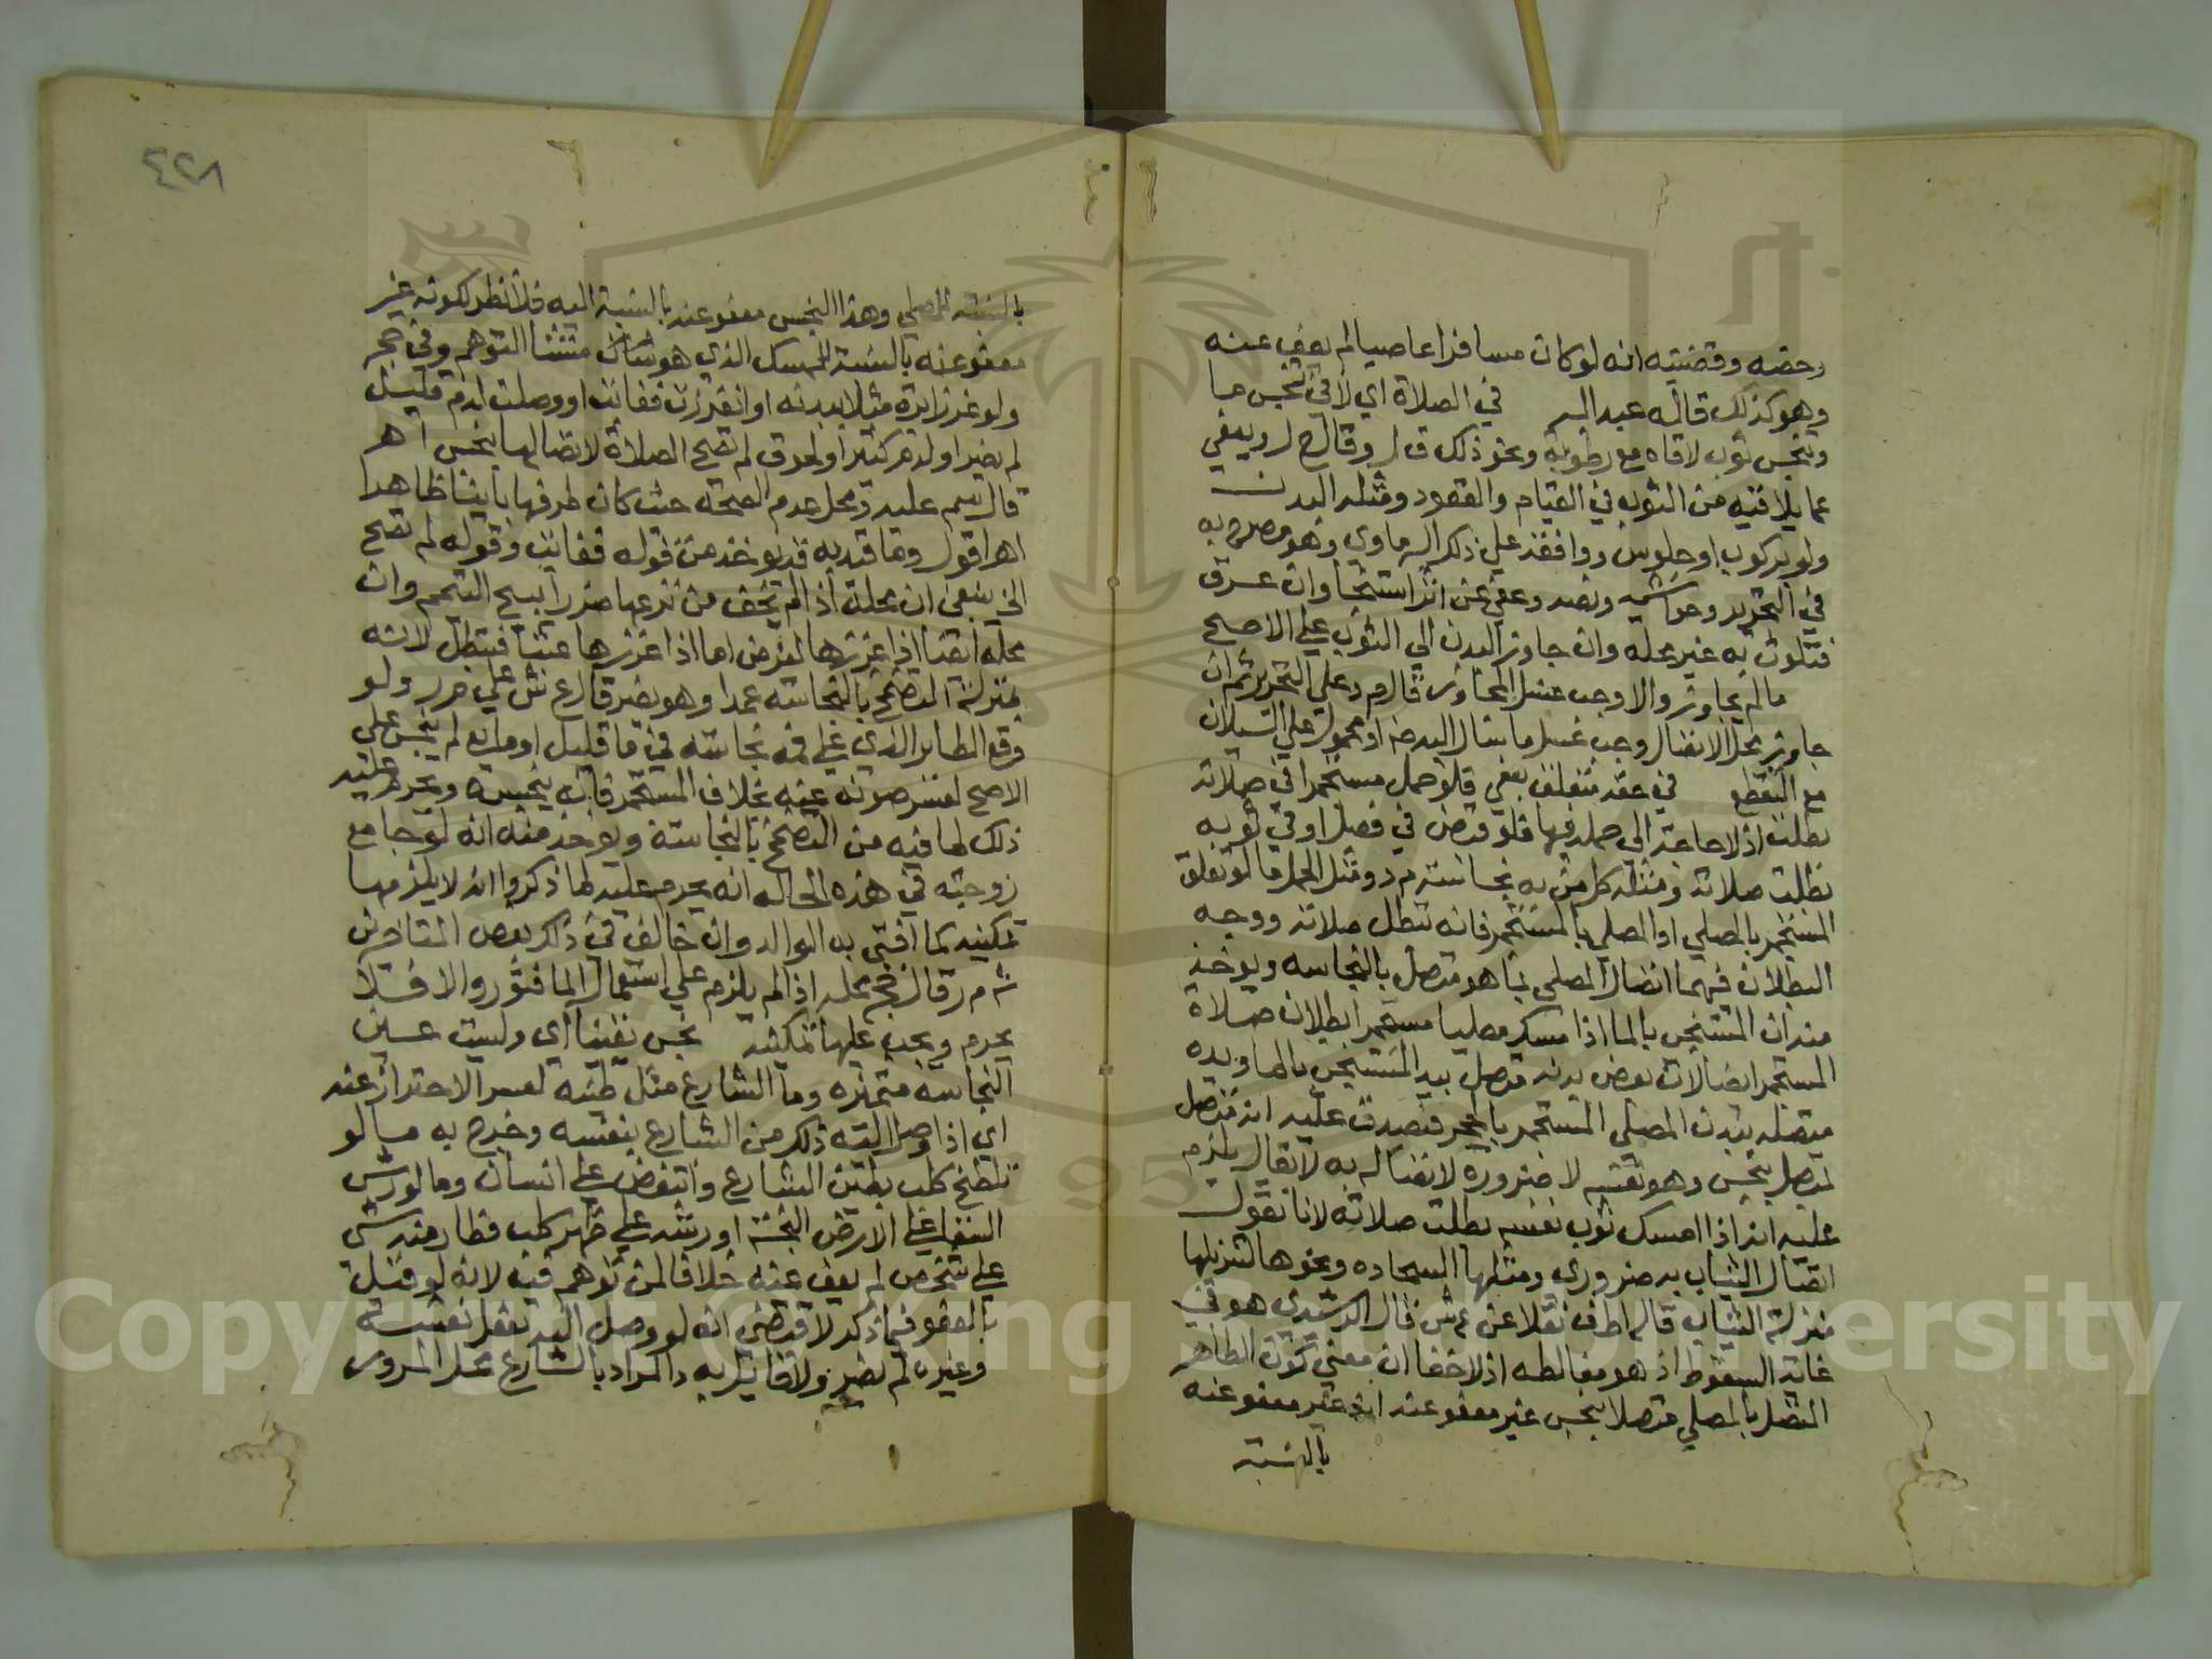 رخصه وقضيته انه لو كان مسافرا عاصيا لم يعف عنه
وهو كذلك قاله عبد البر في الصلاة اي لا في تنجس ما
وينجس ثوب لاقاه مع رطوبة ونحو ذلك ق ل وقال ح ل ويعفي
عما يلاقيه من الثوب في القيام والقعود ومثله البدن
ولو بركوب او جلوس ووافقه علي ذلك البرماوي وهو مصرح به
في التحرير وحواشيه ونصه وعفي عن اثر استنجا وان عرق
فتلوث به غير محله وان جاوز البدن الي الثوب علي الاصح
ما لم يجاوز والا وجب غسل المجاوز قال م د علي التحرير ثم ان
جاوز محل الاتصال وجب غسل ما سال اليه او محمول علي السيلان
مع التقطع في حقه متعلق بعفي فلو حمل مستجمرا في صلاته
بطلت اذ لا حاجة الي حمله فيها فلو قبض في فصل او في ثوبه
بطلت صلاته ومثله كل من به نجاسة م د ومثل الحمل ما لو تعلق
المستجمر بالمصلي او المصلي بالمستجمر فانه تبطل صلاته ووجه
البطلان فيهما اتصال المصلي بما هو متصل بالنجاسه ويوخذ
منه ان المستنجي بالما اذا مسك مصليا مستجمرا بطلان صلاة
المستجمر اتصالات بعض بدنه متصل بيد المستنجي بالما ويده
متصله ببدن المصلي المستجمر بالحجر فتصدق عليه انه متصل
بمتصل بنجس وهو نفسه لا ضرورة لاتصاله به لا يقال يلزم
عليه انه اذا امسك ثوب نفسه بطلت صلاته لانا نقول
اتصال الثياب به ضروري ومثلها السجاده ونحوها لتنزيلها
منزلة الثياب قاله اط ف نقلا عن ع ش قال الرشيدي هو في
غاية السقوط اذ هو مغالطه اذ لا خفا ان معني كون الطاهر
المتصل بالمصلي متصلا بنجس غير معفو عنه انه غير معفو عنه
بالنسبة
٤٢٨
بالنسبة للمصلي وهذا النجس معفو عنه بالنسبة اليه فلا نظر لكونه غير
معفو عنه بالنسبة للممسك الذي هو منشا التوهم وفي حجر
ولو غرز ابرة مثلا ببدنه او انغرزت فغابت او وصلت لدم قليل
لم يضر او لدم كثير او لجوف لم تصح الصلاة لاتصالها بنجس اه
قال سم عليه ومحل عدم الصحة حيث كان طرفها باينا ظاهرا
اه اقول وما قيد به قد يوخذ من قوله فغابت وقوله لم تصح
الخ ينبغي ان محله اذا لم يخف من نزعها ضررا يبيح التيمم وان
محله ايضا اذا غرزها لغرض اما اذا غرزها عبثا فتبطل لانه
بمنزلة التضمخ بالنجاسة عمدا وهو يضر قاله ع ش علي م ر ولو
وقع الطاير الذي علي فيه نجاسة في ما قليل او مايع لم ينجس علي
الاصح لعسر صونه عنه بخلاف المستجمر فانه ينجسه ويحرم عليه
ذلك لما فيه من التضمخ بالنجاسة ويوخذ منه انه لو جامع
زوجته في هذه الحاله انه يحرم عليه لما ذكروا انه لا يلزمها
تمكينه كما افتي به الوالد وان خالف في ذلك بعض المتاخرين
ش م ر قال ح ج محله اذا لم يلزم علي استعمال الما فتور والا فلا
يحرم ويجب عليها تمكينه نجس يقينا اي وليست عين
النجاسة متميزه وما الشارع مثل طينه لعسر الاحتراز عنه
اي اذا وصل اليه ذلك من الشارع بنفسه وخرج به ما لو
تلطخ كلب بطين الشارع وانتفض علي انسان وما لو رش
السقا علي الارض النجسة او رشه علي ظهر كلب فطار منه شي
علي شخص لم يعف عنه خلافا لمن توهم فيه لانه لو قيل
بالعفو فيما ذكر لاقتضي انه لو وصل اليه بفعل نفسه
وغيره لم يضر ولا قايل به والمراد بالشارع محل المرور